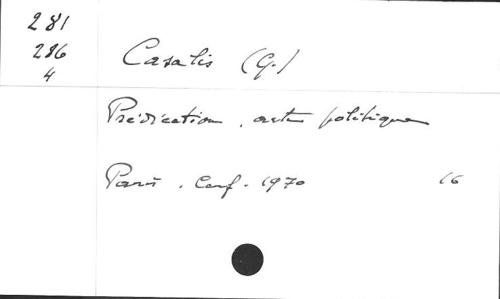 281
286
4
Casalis (G.)
Prédication, acte politique
Paris. Cerf. 1970 16